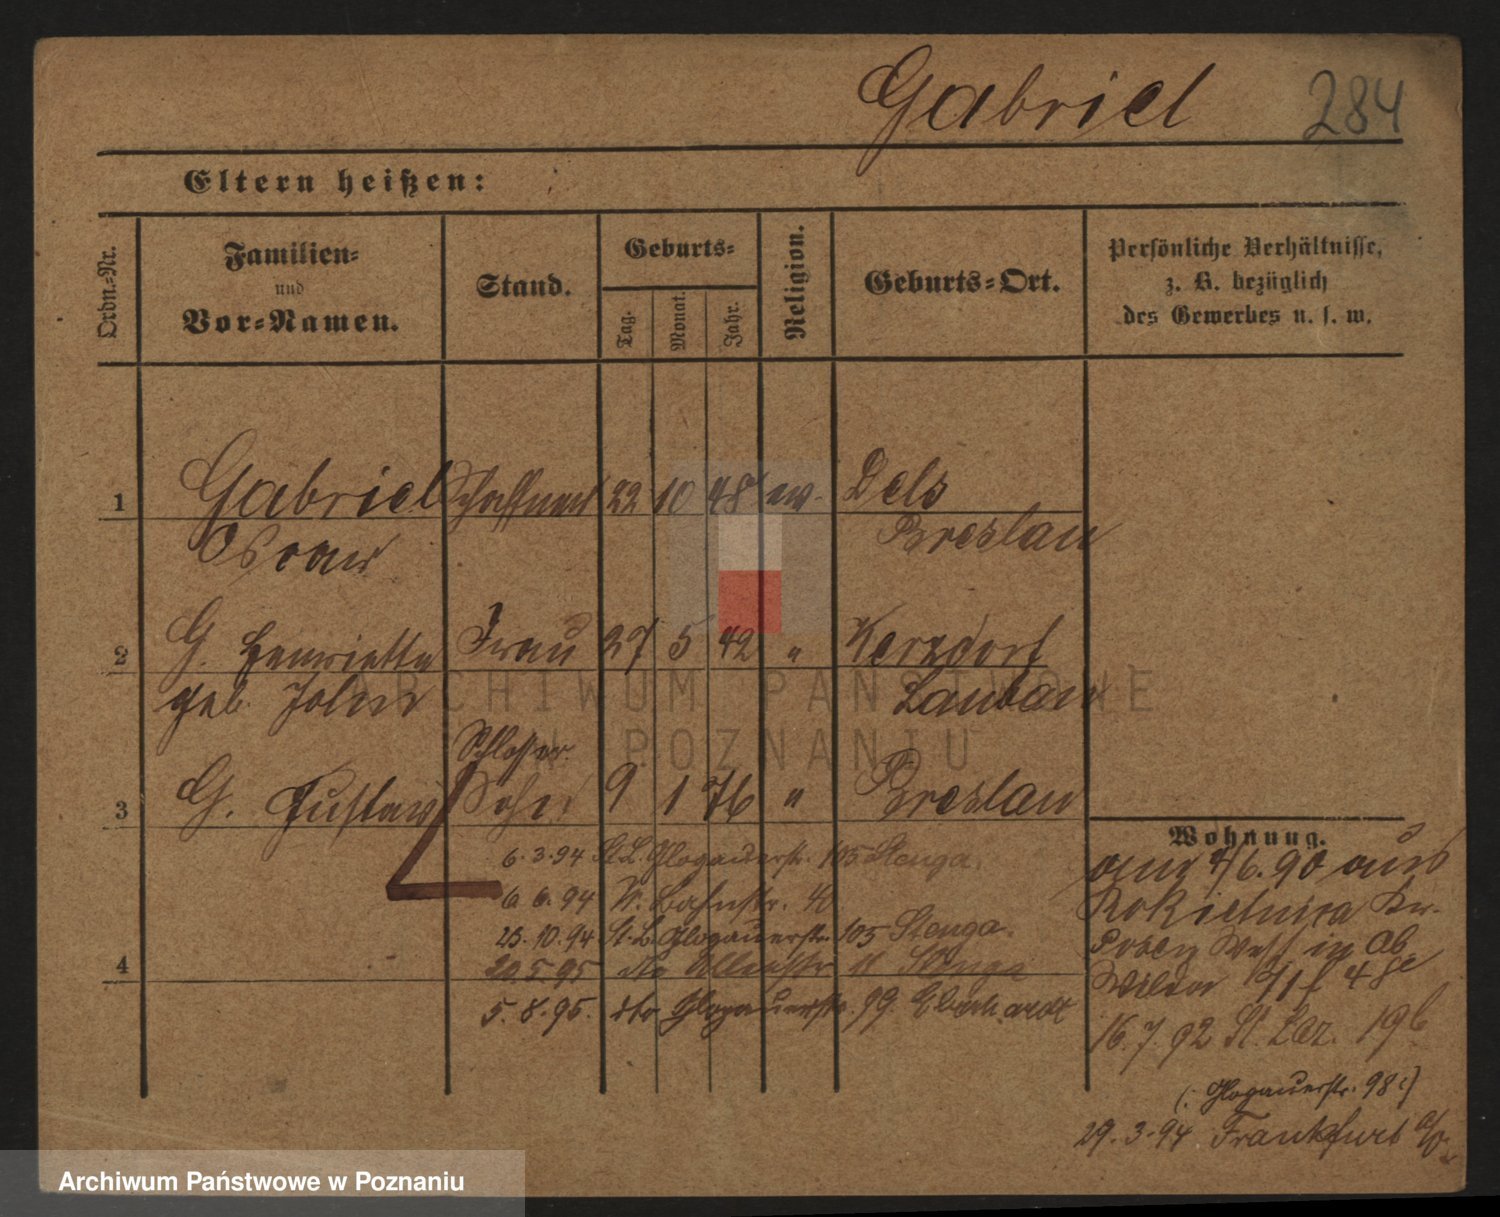 Gabriel 284
Eltern heißen:
Ordn.-Nr.
Familien-
und
Vor-Namen.
Stand.
Geburts-
Tag.
Monat.
Jahr.
Religion.
Geburts-Ort.
Persönliche Verhältnisse,
z. B. bezüglich
des Gewerbes u. s. w.
1 Gabriel Schaffner 22 10 48 ev. Oels
Oscar Breslau
2 G. Henriette Frau 27 5 42 " Kerzdorf
geb. Lauban
Schlosser
3 G. Gustav Sohn 9 1 76 " Breslau
Wohnung.
6.3.94 St. L. Glogauerstr. 105 Stenga.
6 6.94 W. Bahnstr. 40
23.10.94 St. L. Glogauerstr. 105 Stenga.
4 20.5.95 dto 11 Stenga
5.8.95. dto Glogauerstr. 99. Eberhardt
am 4/6.90 aus
Rokietnica Kr.
Posen West in
16.7.92 St. Laz. 19b
(: Glogauerstr. 98 :)
29.3.94 Frankfurt a/O.
ARCHIWUM PAŃSTWOWE
W POZNANIU
Archiwum Państwowe w Poznaniu